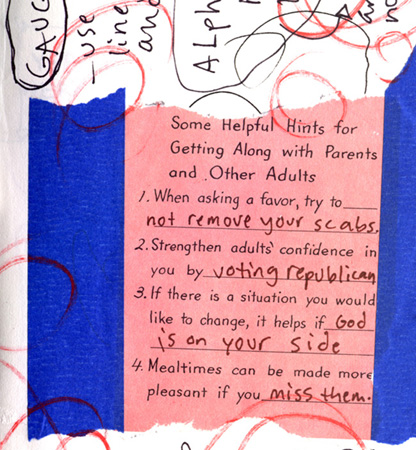 GAUG
- use
line
and
ALPH
Some Helpful Hints for
Getting Along with Parents
and Other Adults
1. When asking a favor, try to
not remove your scabs.
2. Strengthen adults' confidence in
you by voting republican
3. If there is a situation you would
like to change, it helps if God
is on your side
4. Mealtimes can be made more
pleasant if you miss them.